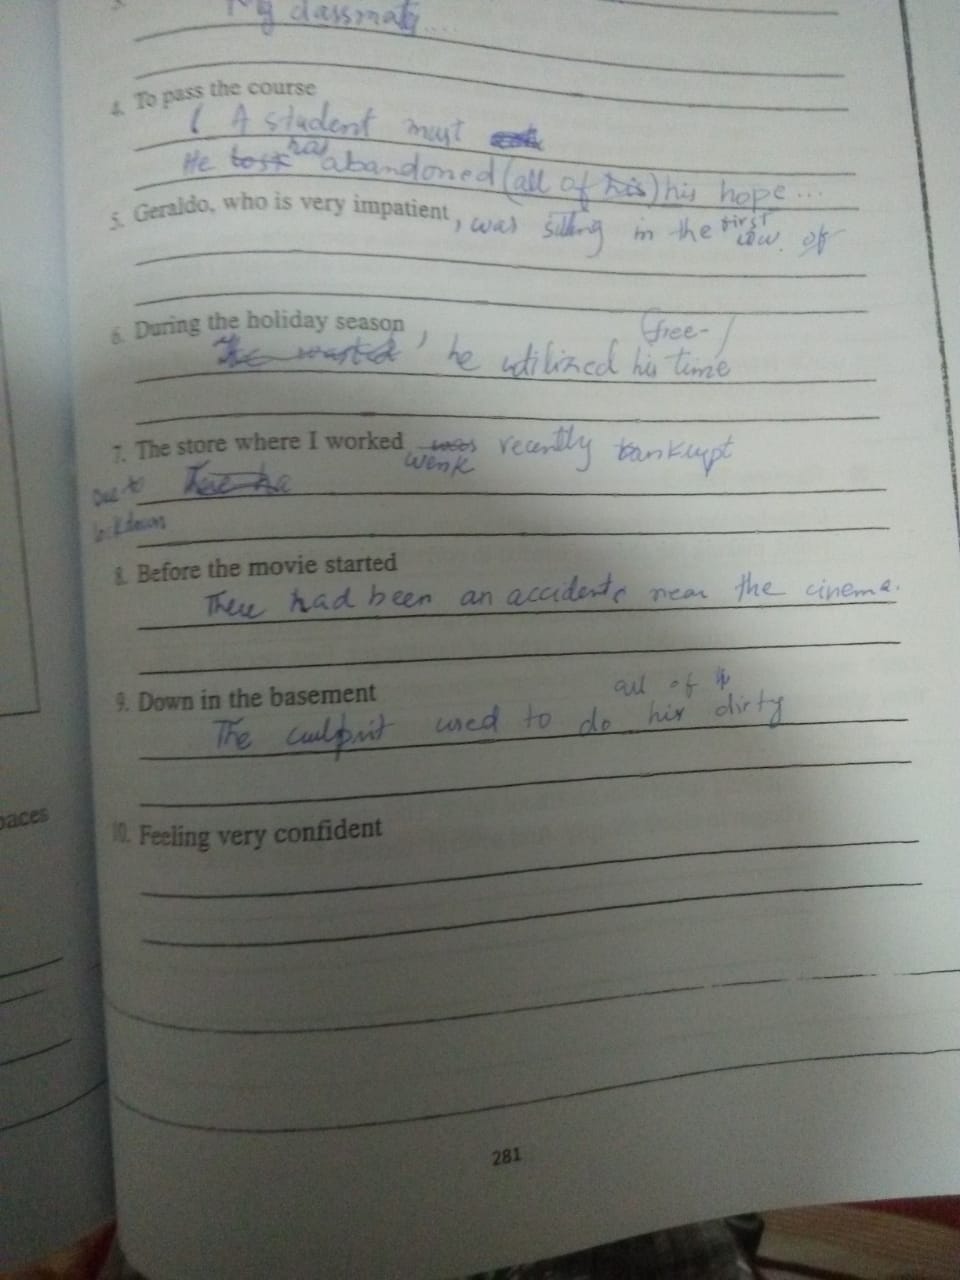 My classmate...
4. To pass the course
( A student must
He has abandoned (all of his) his hope...
5. Geraldo, who is very impatient, was sitting in the first row. of
6. During the holiday season,
free-
The wasted he utilized his time
7. The store where I worked was recently bankrupt
went
Due to
lockdown
8. Before the movie started
There had been an accidents near the cinema.
9. Down in the basement
all of
The culprit used to do his dirty
10. Feeling very confident
paces
281